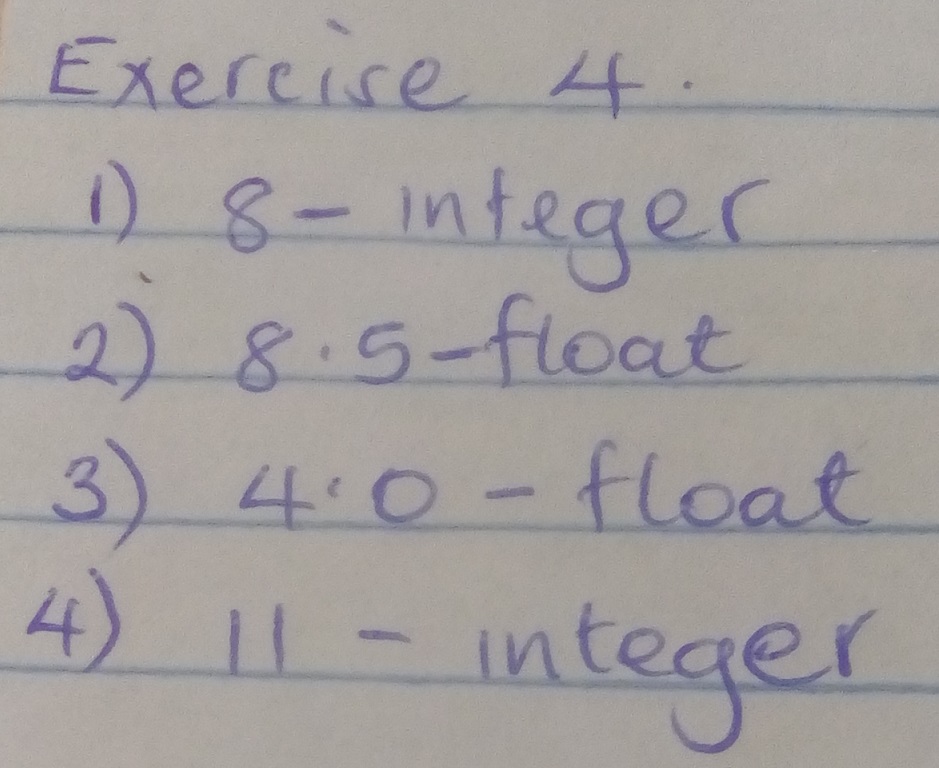 Exercise 4.
1) 8 - integer
2) 8.5 - float
3) 4.0 - float
4) 11 - integer